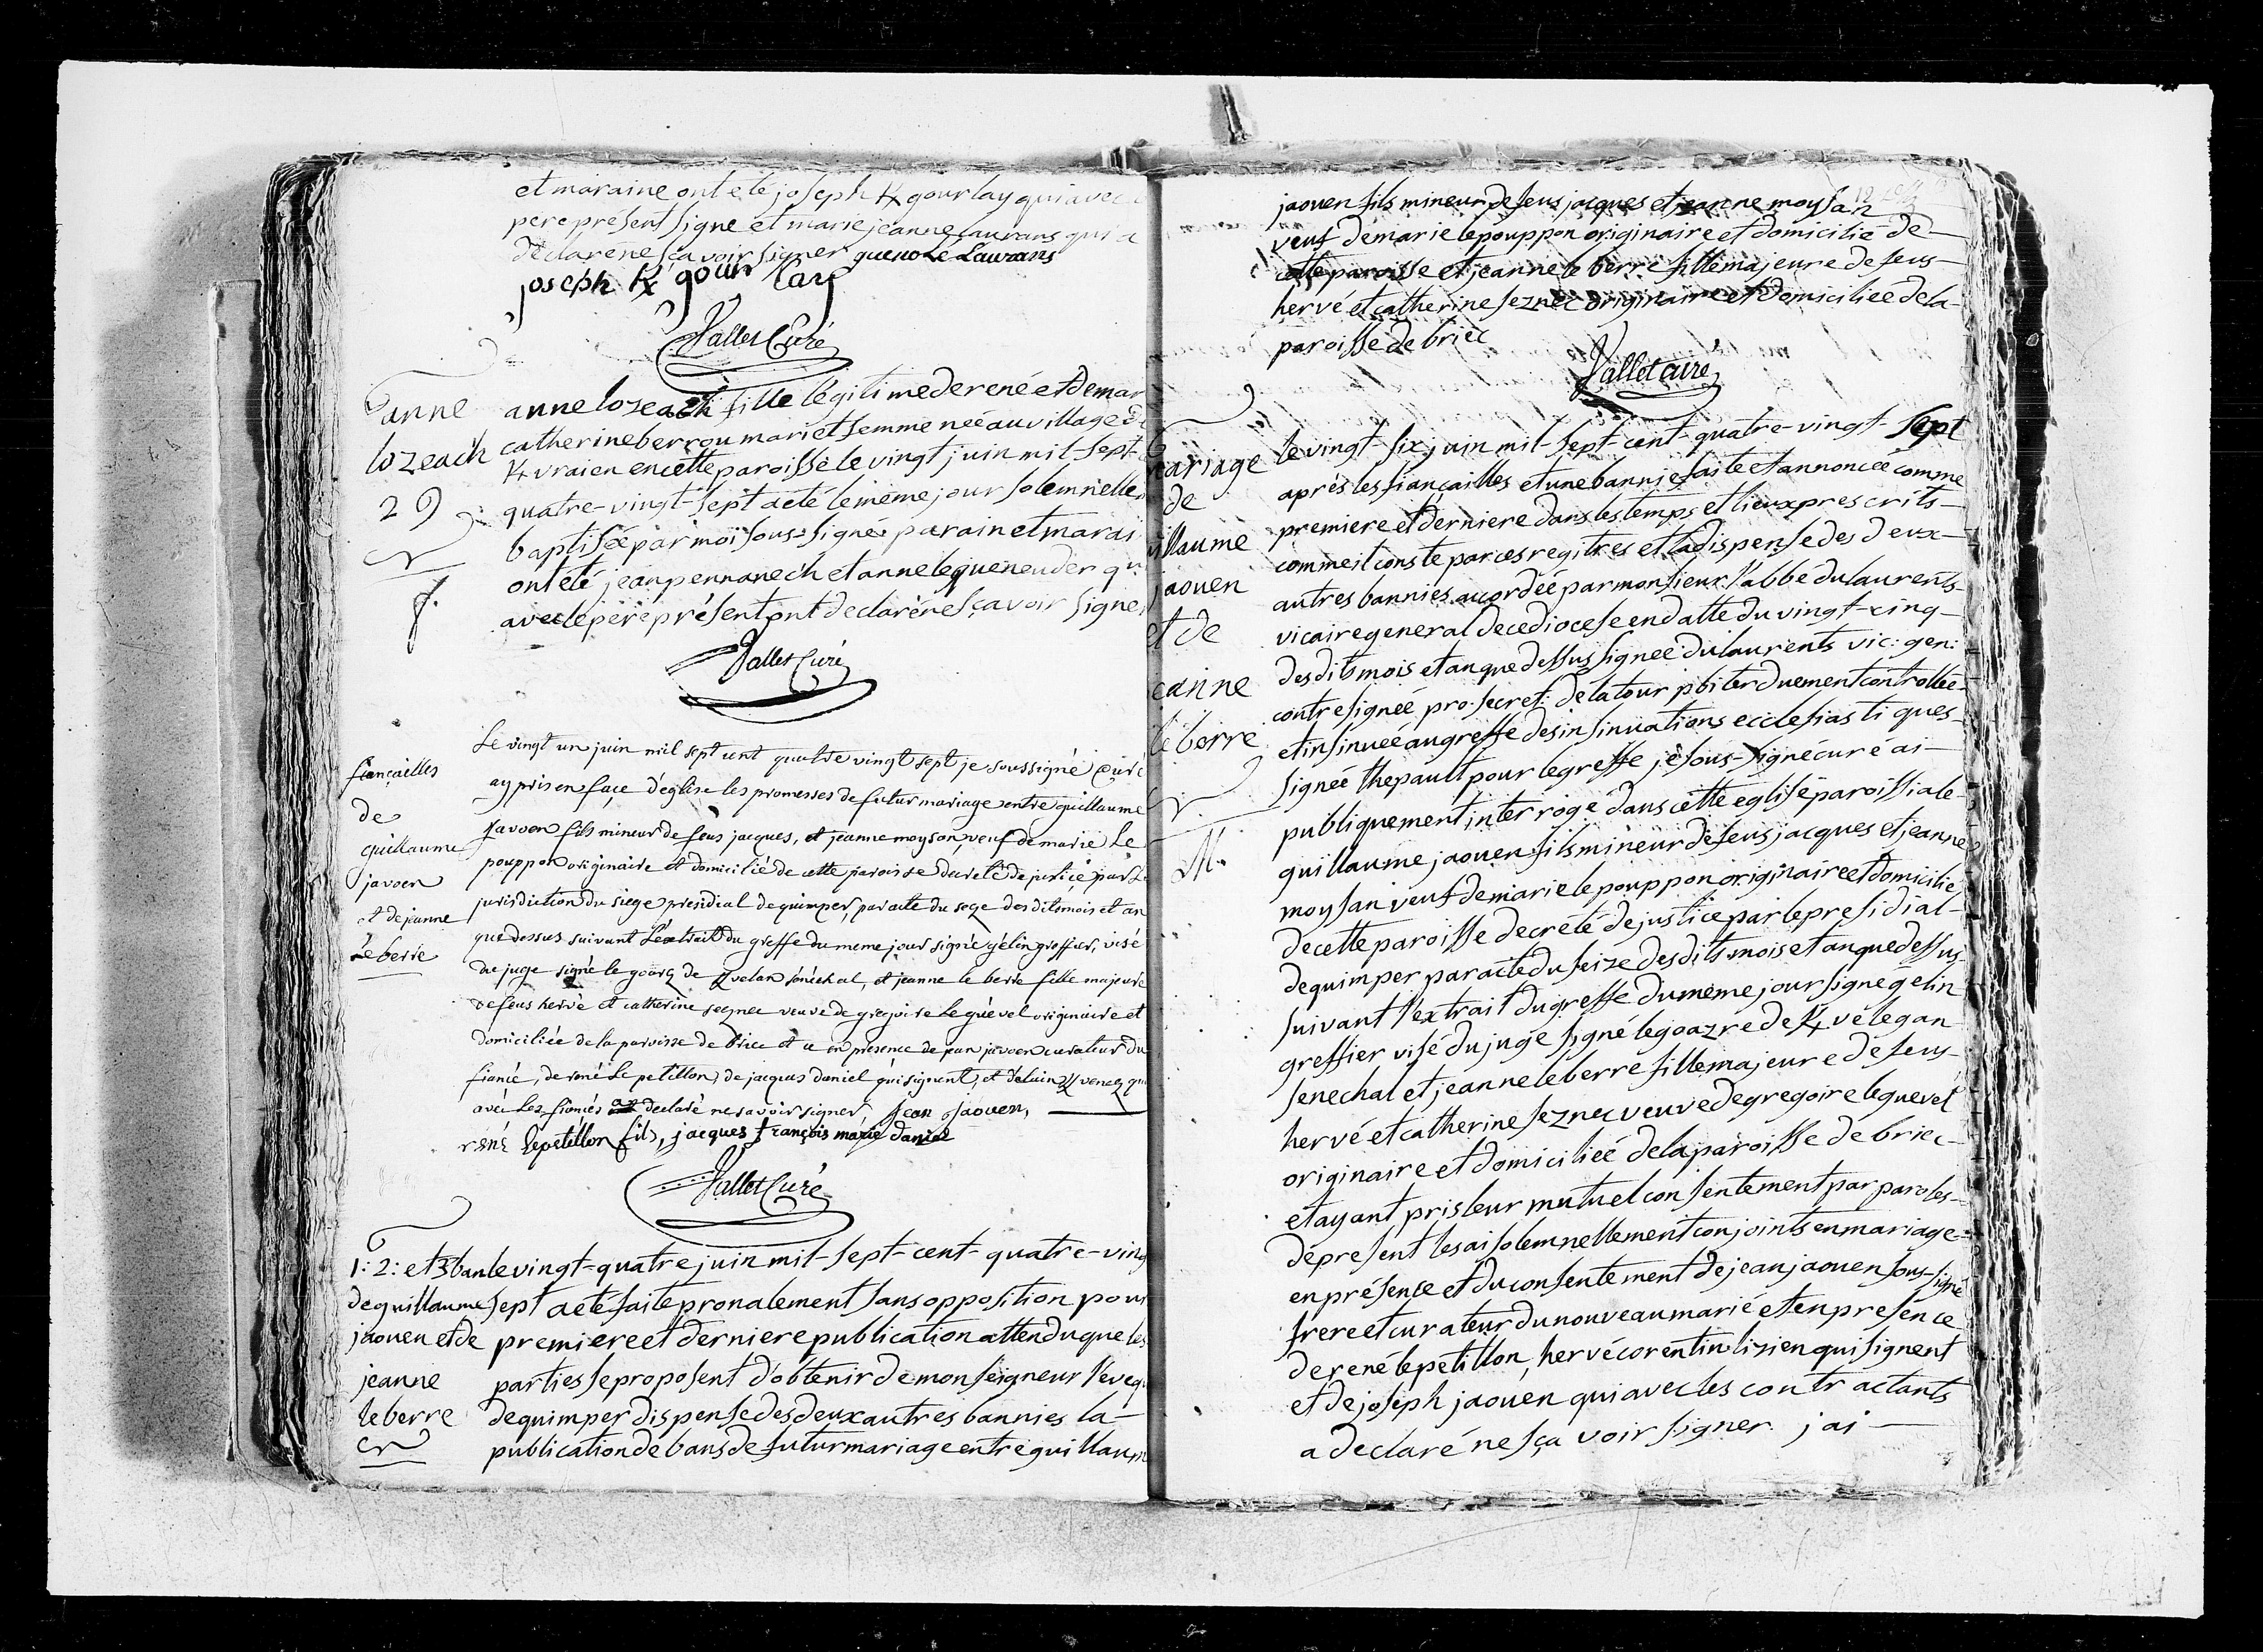 et maraine ont eté joseph K/ gourlay qui avec
pere present signe et marie jeanne laurans qui a
declaré ne sçavoir signer guenole Laurans
joseph K/ gour lay
Vallet Curé
anne
lozeach
29
f.
anne lozeach fille légitime de rené et de mar
catherine berrou mari et femme née au village d
K/vraien en cette paroisse le vingt juin mil-sept-
quatre-vingt-sept a eté le même jour solemnelle
baptisée par moi sous-signé parain et marai
ont été jean pennanech et anne le queneuder qu
avec le pere présent ont declaré ne sçavoir signe
Vallet Curé
fiançailles
de
guillaume
javoen
et de jeanne
Le berre
Le vingt un juin mil sept cent quatre vingt sept je soussigné Curé
ay pris en façe d'église les promesses de futur mariage entre guillaume
javoen fils mineur de feus jacques, et jeanne moysan, veuf de marie Le
pouppon originaire et domicilié de cette paroisse decreté de justice par La
jurisdiction du siege presidial de quimper, par acte du seze des dits mois et an
que dessus suivant L'extrait du greffe du meme jour signé gélin greffier, visé
du juge signé le goazre de K/velan sénéchal, et jeanne le berre fille majeure
de feus hervé et catherine seznec veuve de gregoire Le guével originaire et
domiciliée de la paroisse de briec et ce en presence de jean javoen curateur du
fiancé, de rené Le petillon, de jacques daniel qui signent, et d'alain K/venez qui
avec Les fiancés a declaré ne savoir signer, jean jaouen,
rené lepetillon fils, jacques françois marie daniel
Vallet Curé
1: 2: et 3 ban
de guillaume
jaouen et de
jeanne
le berre
le vingt-quatre juin mil-sept-cent-quatre-ving
sept a eté faite pronalement sans opposition pour
premiere et derniere publication attendu que les
parties se proposent d'obtenir de monseigneur l'éveq
de quimper dispense des deux autres bannies la-
publication de bans de futur mariage entre guillaum
jaouen fils mineur de feus jacques et jeanne moysan
veuf de marie le pouppon originaire et domicilié de-
cette paroisse et jeanne le berre fille majeure de feus-
hervé et catherine seznec originaire et domiciliée de la-
paroisse de briec
Vallet curé
mariage
de
uillaume
jaouen
et de
eanne
le berre
M.
le vingt-six juin mil-sept-cent-quatre-vingt-sept
après les fiançailles et une bannie faite et annoncée comme
premiere et derniere dans les temps et lieux prescrits-
comme il conste par ces regitres et la dispense des deux-
autres bannies accordée par monsieur l'abbé dulaurents-
vicaire general de ce diocese en datte du vingt-cinq-
des dits mois et an que dessus signée dulaurents vic: gen:
contre signée pro-secret: de la tour pbiter duement controllée-
et insinuée au greffe des insinuations ecclesiastiques-
signée thepault pour le greffe je sous-signé curé ai-
publiquement interrogé dans cette eglise paroissiale-
guillaume jaouen fils mineur de feus jacques et jeanne
moysan veuf de marie le pouppon originaire et domicilié
de cette paroisse decrété de justice par le presidial-
de quimper par acte du seize des dits mois et an que dessus
suivant l'extrait du greffe du même jour signé gélin
greffier visé du juge signé le goazre de K/vélegan
senechal et jeanne le berre fille majeure de feus-
hervé et catherine seznec veuve de gregoire le guevel
originaire et domiciliée de la paroisse de briec-
et ayant pris leur mutuel consentement par paroles-
de present les ai solemnellement conjoints en mariage-
en présence et du consentement de jean jaouen sous-signé
frere et curateur du nouveau marié et en présence
de rené le petillon, hervé corentin lizien qui signent
et de joseph jaouen qui avec les contractants
a declaré ne sçavoir signer. j'ai-